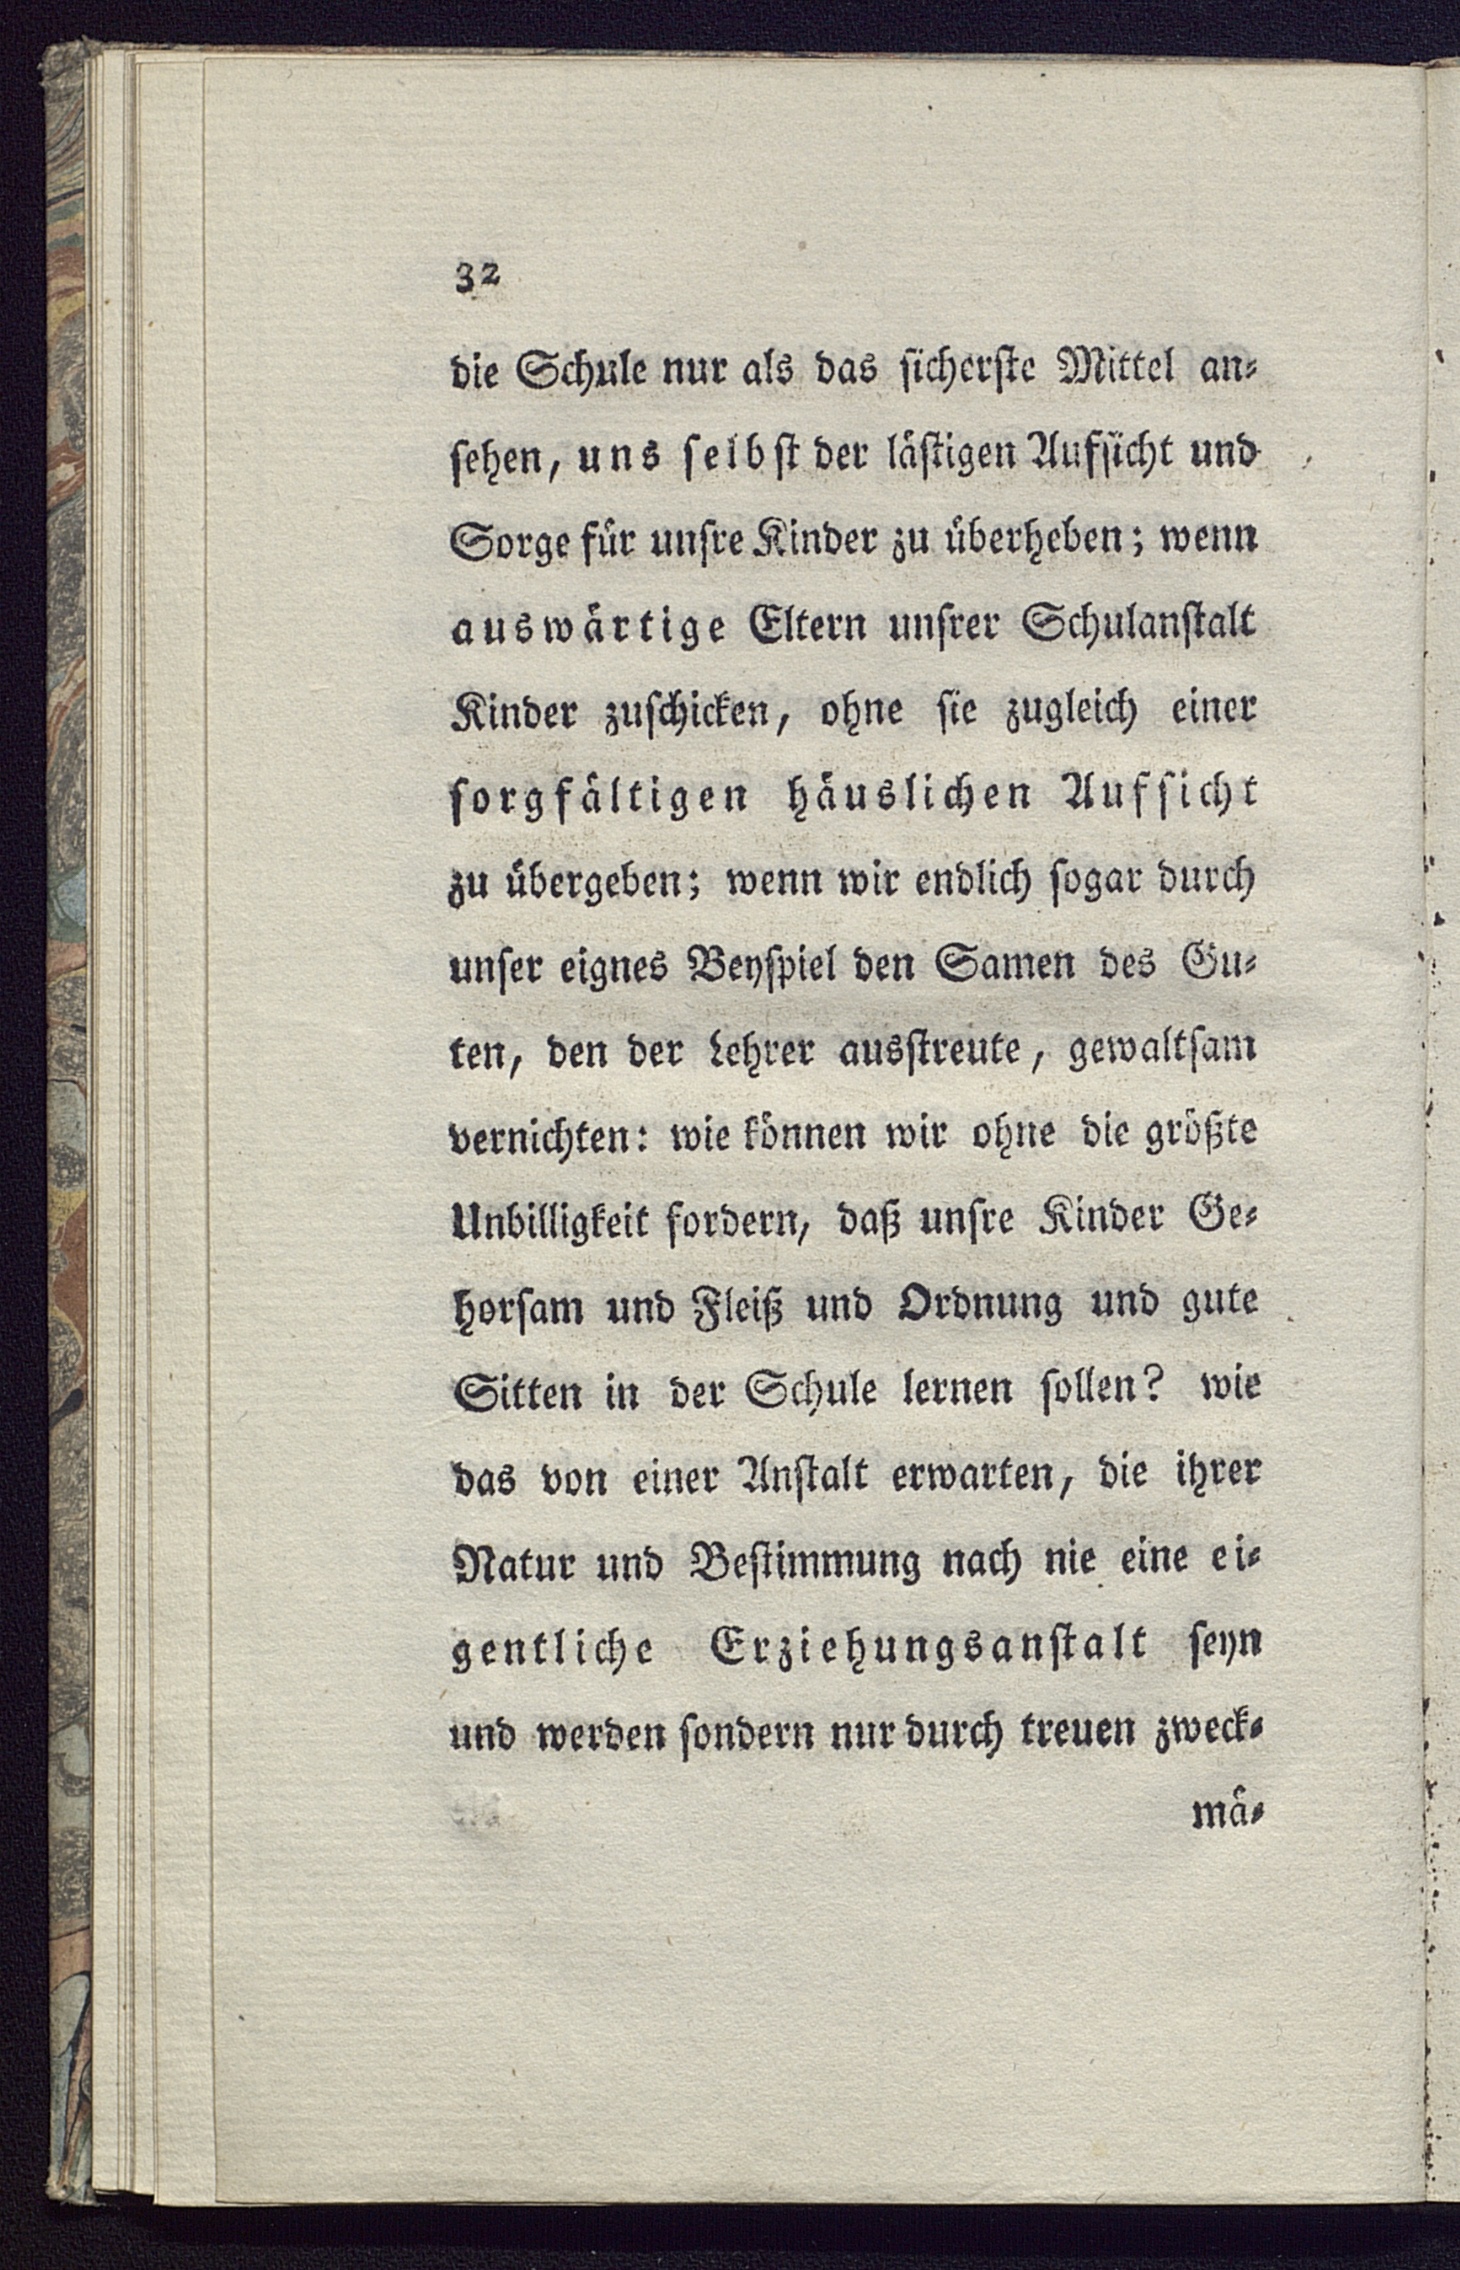 32
die Schule nur als das sicherste Mittel an-
sehen, uns selbst der lästigen Aufsicht und
Sorge für unsre Kinder zu überheben; wenn
auswärtige Eltern unsrer Schulanstalt
Kinder zuschicken, ohne sie zugleich einer
sorgfältigen häuslichen Aufsicht
zu übergeben; wenn wir endlich sogar durch
unser eignes Beyspiel den Samen des Gu-
ten, den der Lehrer ausstreute, gewaltsam
vernichten: wie können wir ohne die größte
Unbilligkeit fordern, daß unsre Kinder Ge-
horsam und Fleiß und Ordnung und gute
Sitten in der Schule lernen sollen? wie
das von einer Anstalt erwarten, die ihrer
Natur und Bestimmung nach nie eine ei-
gentliche Erziehungsanstalt seyn
und werden sondern nur durch treuen zweck-
mä-